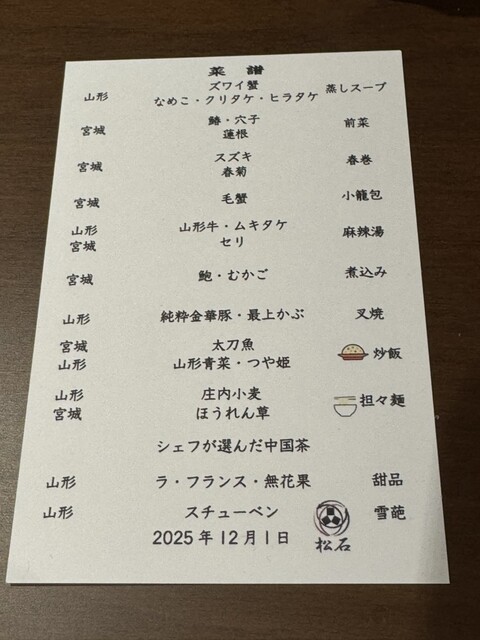 菜譜
山形 ズワイ蟹 蒸しスープ
なめこ・クリタケ・ヒラタケ
宮城 鰆・穴子 前菜
蓮根
宮城 スズキ 春巻
春菊
宮城 毛蟹 小籠包
山形 山形牛・ムキタケ 麻辣湯
宮城 セリ
宮城 鮑・むかご 煮込み
山形 純粋金華豚・最上かぶ 叉焼
宮城 太刀魚 炒飯
山形 山形青菜・つや姫
山形 庄内小麦 担々麺
宮城 ほうれん草
シェフが選んだ中国茶
山形 ラ・フランス・無花果 甜品
山形 スチューベン 雪葩
2025年12月1日 松石